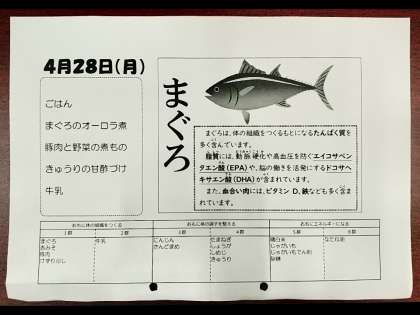 4月28日(月)
ごはん
まぐろのオーロラ煮
豚肉と野菜の煮もの
きゅうりの甘酢づけ
牛乳
まぐろ
まぐろは、体の組織をつくるもとになるたんぱく質を
多く含んでいます。
脂質には、動脈硬化や高血圧を防ぐエイコサペン
タエン酸(EPA)や、脳の働きを活発にするドコサヘ
キサエン酸(DHA)が含まれています。
また、血合い肉には、ビタミンD、鉄なども多く含ま
れています。
おもに体の組織をつくる おもに体の調子を整える おもにエネルギーになる
1群 2群 3群 4群 5群 6群
まぐろ 牛乳 にんじん たまねぎ 精白米 なたね油
あみそ さんどまめ しょうが じゃがいも
豚肉 しめじ じゃがいもでん粉
けずりぶし きゅうり 砂糖